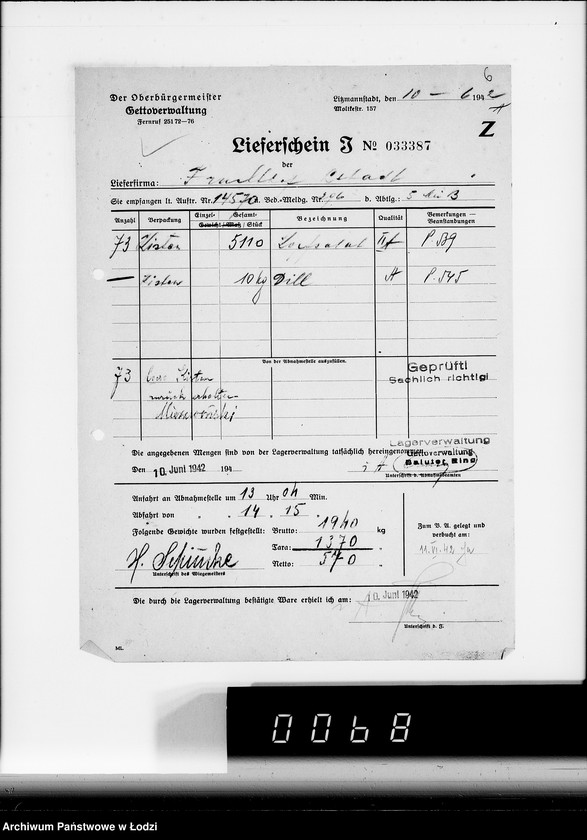 6
Der Oberbürgermeister
Gettoverwaltung
Fernruf 25172–76
Litzmannstadt, den 10 – 6 1942
Moltkestr. 157
Z
Lieferschein J № 033387
der
Lieferfirma:
Sie empfangen lt. Auftr. Nr. 14570 Bed.-Meldg. Nr. 296 d. Abtlg.: 5
Anzahl Verpackung Einzel- Gesamt- Bezeichnung Qualität Bemerkungen — Beanstandungen
Gewicht/Maß/Stück
73 Kisten 5110 Kopfsalat II A P. 539
— Kisten 10 kg Dill A P. 545
Von der Abnahmestelle auszufüllen.
73 leere Kisten
zurück erhalten
Geprüft!
Sachlich richtig!
Lagerverwaltung
Gettoverwaltung
Baluter Ring
Die angegebenen Mengen sind von der Lagerverwaltung tatsächlich hereingenommen
Den 10. Juni 1942 194
i A
Unterschrift des Abnahmebeamten
Anfahrt an Abnahmestelle um 13 Uhr 04 Min.
Abfahrt von " " 14 " 15 "
Folgende Gewichte wurden festgestellt: Brutto: 1940 kg
Tara: 1370 "
Netto: 570 "
Unterschrift des Wiegemeisters
Zum B. A. gelegt und
verbucht am:
11. VI. 42
Die durch die Lagerverwaltung bestätigte Ware erhielt ich am: 10. Juni 1942
Unterschrift d. F.
ML.
0068
Archiwum Państwowe w Łodzi